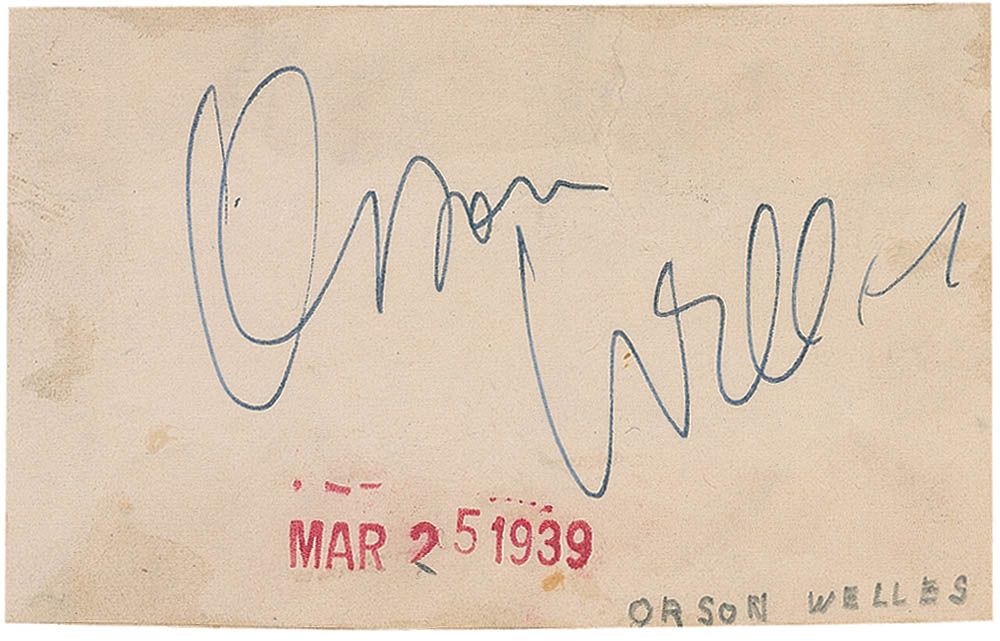 Orson
Welles
MAR 25 1939
ORSON WELLES